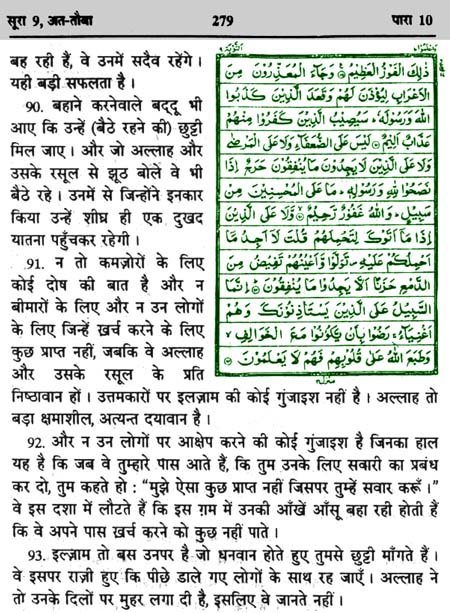 सूरा 9, अत-तौबा
279
पारा 10
बह रही हैं, वे उनमें सदैव रहेंगे।
यही बड़ी सफलता है।
90. बहाने करनेवाले बद्दू भी
आए कि उन्हें (बैठे रहने की) छुट्टी
मिल जाए। और जो अल्लाह और
उसके रसूल से झूठ बोले वे भी
बैठे रहे। उनमें से जिन्होंने इनकार
किया उन्हें शीघ्र ही एक दुखद
यातना पहुँचकर रहेगी।
91. न तो कमज़ोरों के लिए
कोई दोष की बात है और न
बीमारों के लिए और न उन लोगों
के लिए जिन्हें ख़र्च करने के लिए
कुछ प्राप्त नहीं, जबकि वे अल्लाह
और उसके रसूल के प्रति
निष्ठावान हों। उत्तमकारों पर इलज़ाम की कोई गुंजाइश नहीं है। अल्लाह तो
बड़ा क्षमाशील, अत्यन्त दयावान है।
92. और न उन लोगों पर आक्षेप करने की कोई गुंजाइश है जिनका हाल
यह है कि जब वे तुम्हारे पास आते हैं, कि तुम उनके लिए सवारी का प्रबंध
कर दो, तुम कहते हो : “मुझे ऐसा कुछ प्राप्त नहीं जिसपर तुम्हें सवार करूँ।”
वे इस दशा में लौटते हैं कि इस ग़म में उनकी आँखें आँसू बहा रही होती हैं
कि वे अपने पास ख़र्च करने को कुछ नहीं पाते।
93. इल्ज़ाम तो बस उनपर है जो धनवान होते हुए तुमसे छुट्टी माँगते हैं।
वे इसपर राज़ी हुए कि पीछे डाले गए लोगों के साथ रह जाएँ। अल्लाह ने
तो उनके दिलों पर मुहर लगा दी है, इसलिए वे जानते नहीं।
ذٰلِكَ الْفَوْزُ الْعَظِيْمُ وَجَآءَ الْمُعَذِّرُوْنَ مِنَ
الْاَعْرَابِ لِيُؤْذَنَ لَهُمْ وَقَعَدَ الَّذِيْنَ كَذَبُوا
اللهَ وَرَسُوْلَهٗ سَيُصِيْبُ الَّذِيْنَ كَفَرُوْا مِنْهُمْ
عَذَابٌ اَلِيْمٌ لَيْسَ عَلَى الضُّعَفَآءِ وَلَا عَلَى الْمَرْضٰى
وَلَا عَلَى الَّذِيْنَ لَا يَجِدُوْنَ مَا يُنْفِقُوْنَ حَرَجٌ اِذَا
نَصَحُوْا لِلّٰهِ وَرَسُوْلِهٖ مَا عَلَى الْمُحْسِنِيْنَ مِنْ
سَبِيْلٍ وَاللهُ غَفُوْرٌ رَّحِيْمٌ وَّلَا عَلَى الَّذِيْنَ
اِذَا مَآ اَتَوْكَ لِتَحْمِلَهُمْ قُلْتَ لَآ اَجِدُ مَآ
اَحْمِلُكُمْ عَلَيْهِ تَوَلَّوْا وَّاَعْيُنُهُمْ تَفِيْضُ مِنَ
الدَّمْعِ حَزَنًا اَلَّا يَجِدُوْا مَا يُنْفِقُوْنَ اِنَّمَا
السَّبِيْلُ عَلَى الَّذِيْنَ يَسْتَاْذِنُوْنَكَ وَهُمْ
اَغْنِيَآءُ رَضُوْا بِاَنْ يَّكُوْنُوْا مَعَ الْخَوَالِفِ
وَطَبَعَ اللهُ عَلٰى قُلُوْبِهِمْ فَهُمْ لَا يَعْلَمُوْنَ